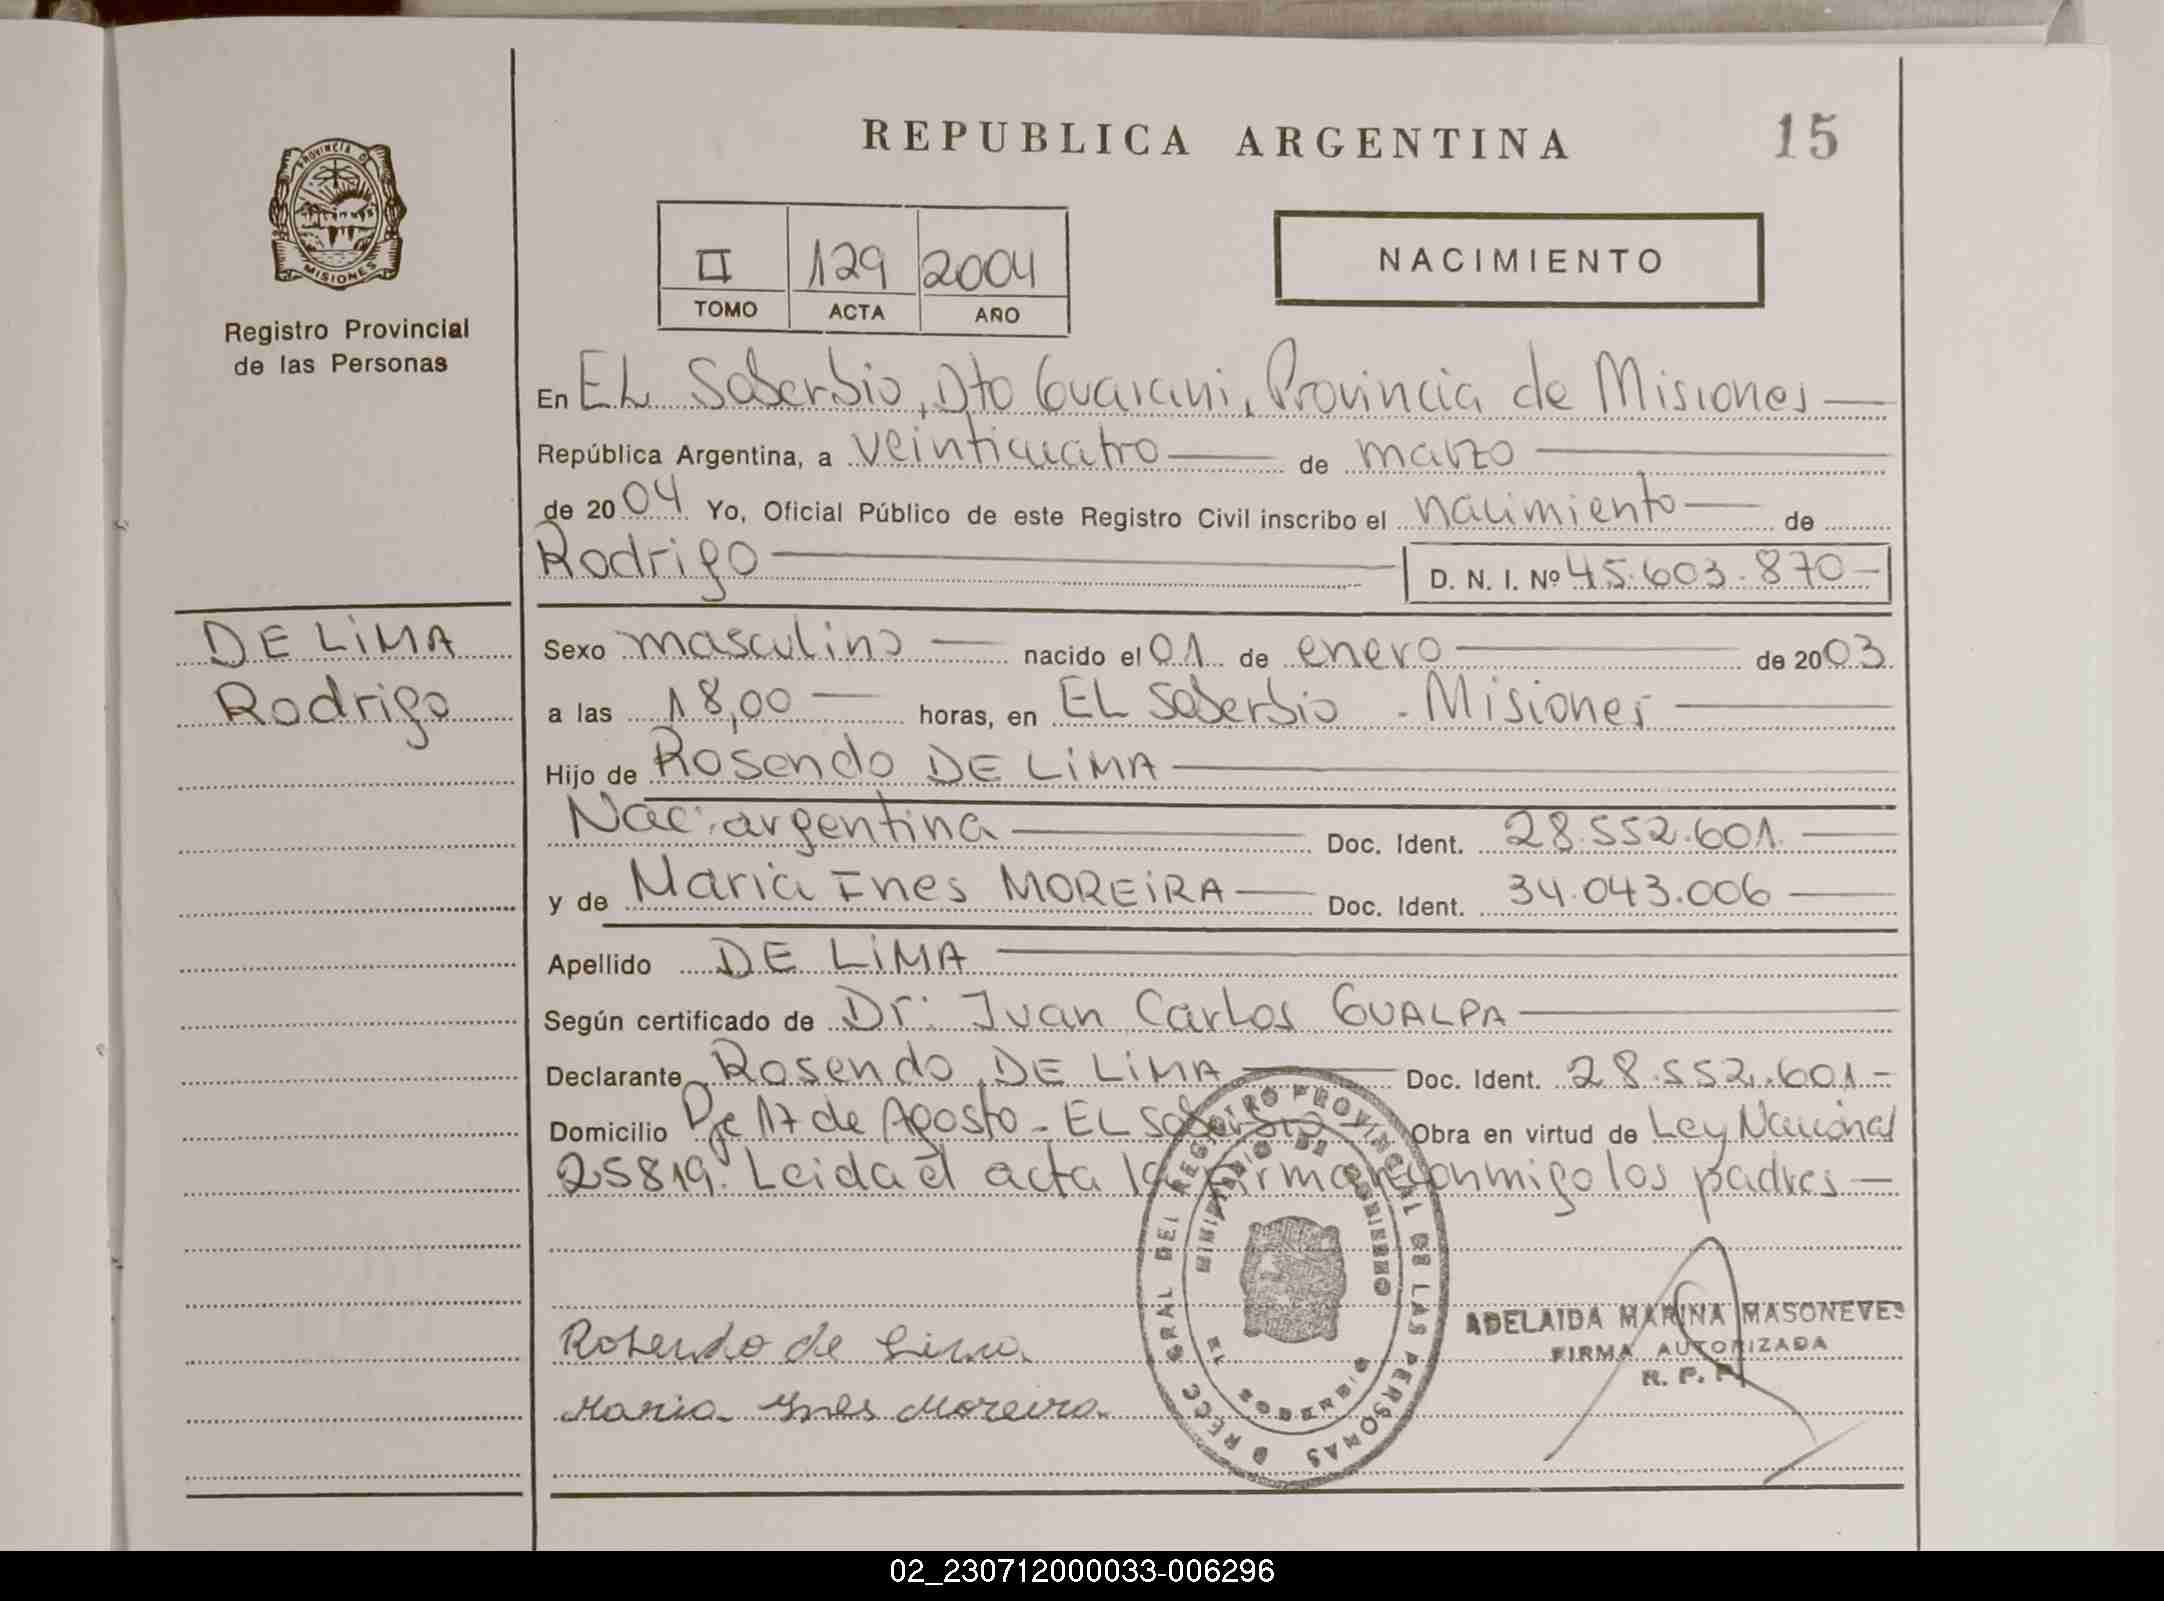 REPUBLICA ARGENTINA
15
PROVINCIA DE
MISIONES
Registro Provincial
de las Personas
II 129 2004
TOMO ACTA AÑO
NACIMIENTO
En EL Soberbio, Dto Guarani, Provincia de Misiones
República Argentina, a veinticuatro de marzo
de 2004 Yo, Oficial Público de este Registro Civil inscribo el nacimiento de
Rodrigo D. N. I. Nº 45.603.870
DE LiMA
Rodrigo
Sexo masculino nacido el 01 de enero de 2003
a las 18,00 horas, en EL Soberbio - Misiones
Hijo de Rosendo DE LiMA
Nac: argentina Doc. Ident. 28.552.601
y de Maria Ines MOREiRA Doc. Ident. 34.043.006
Apellido DE LiMA
Según certificado de Dr: Juan Carlos GUALPA
Declarante Rosendo DE LiMA Doc. Ident. 28.552.601
Domicilio Pje 17 de Agosto - EL Soberbio Obra en virtud de Ley Nacional
25819. Leida el acta la firman conmigo los padres
DIRECC GRAL DEL REGISTRO PROVINCIAL DE LAS PERSONAS
MINISTERIO DE GOBIERNO
EL SOBERBIO
ADELAIDA MARINA MASONEVES
FIRMA AUTORIZADA
R. P. P.
Rosendo de Lima
Maria Ines Moreira
02_230712000033-006296